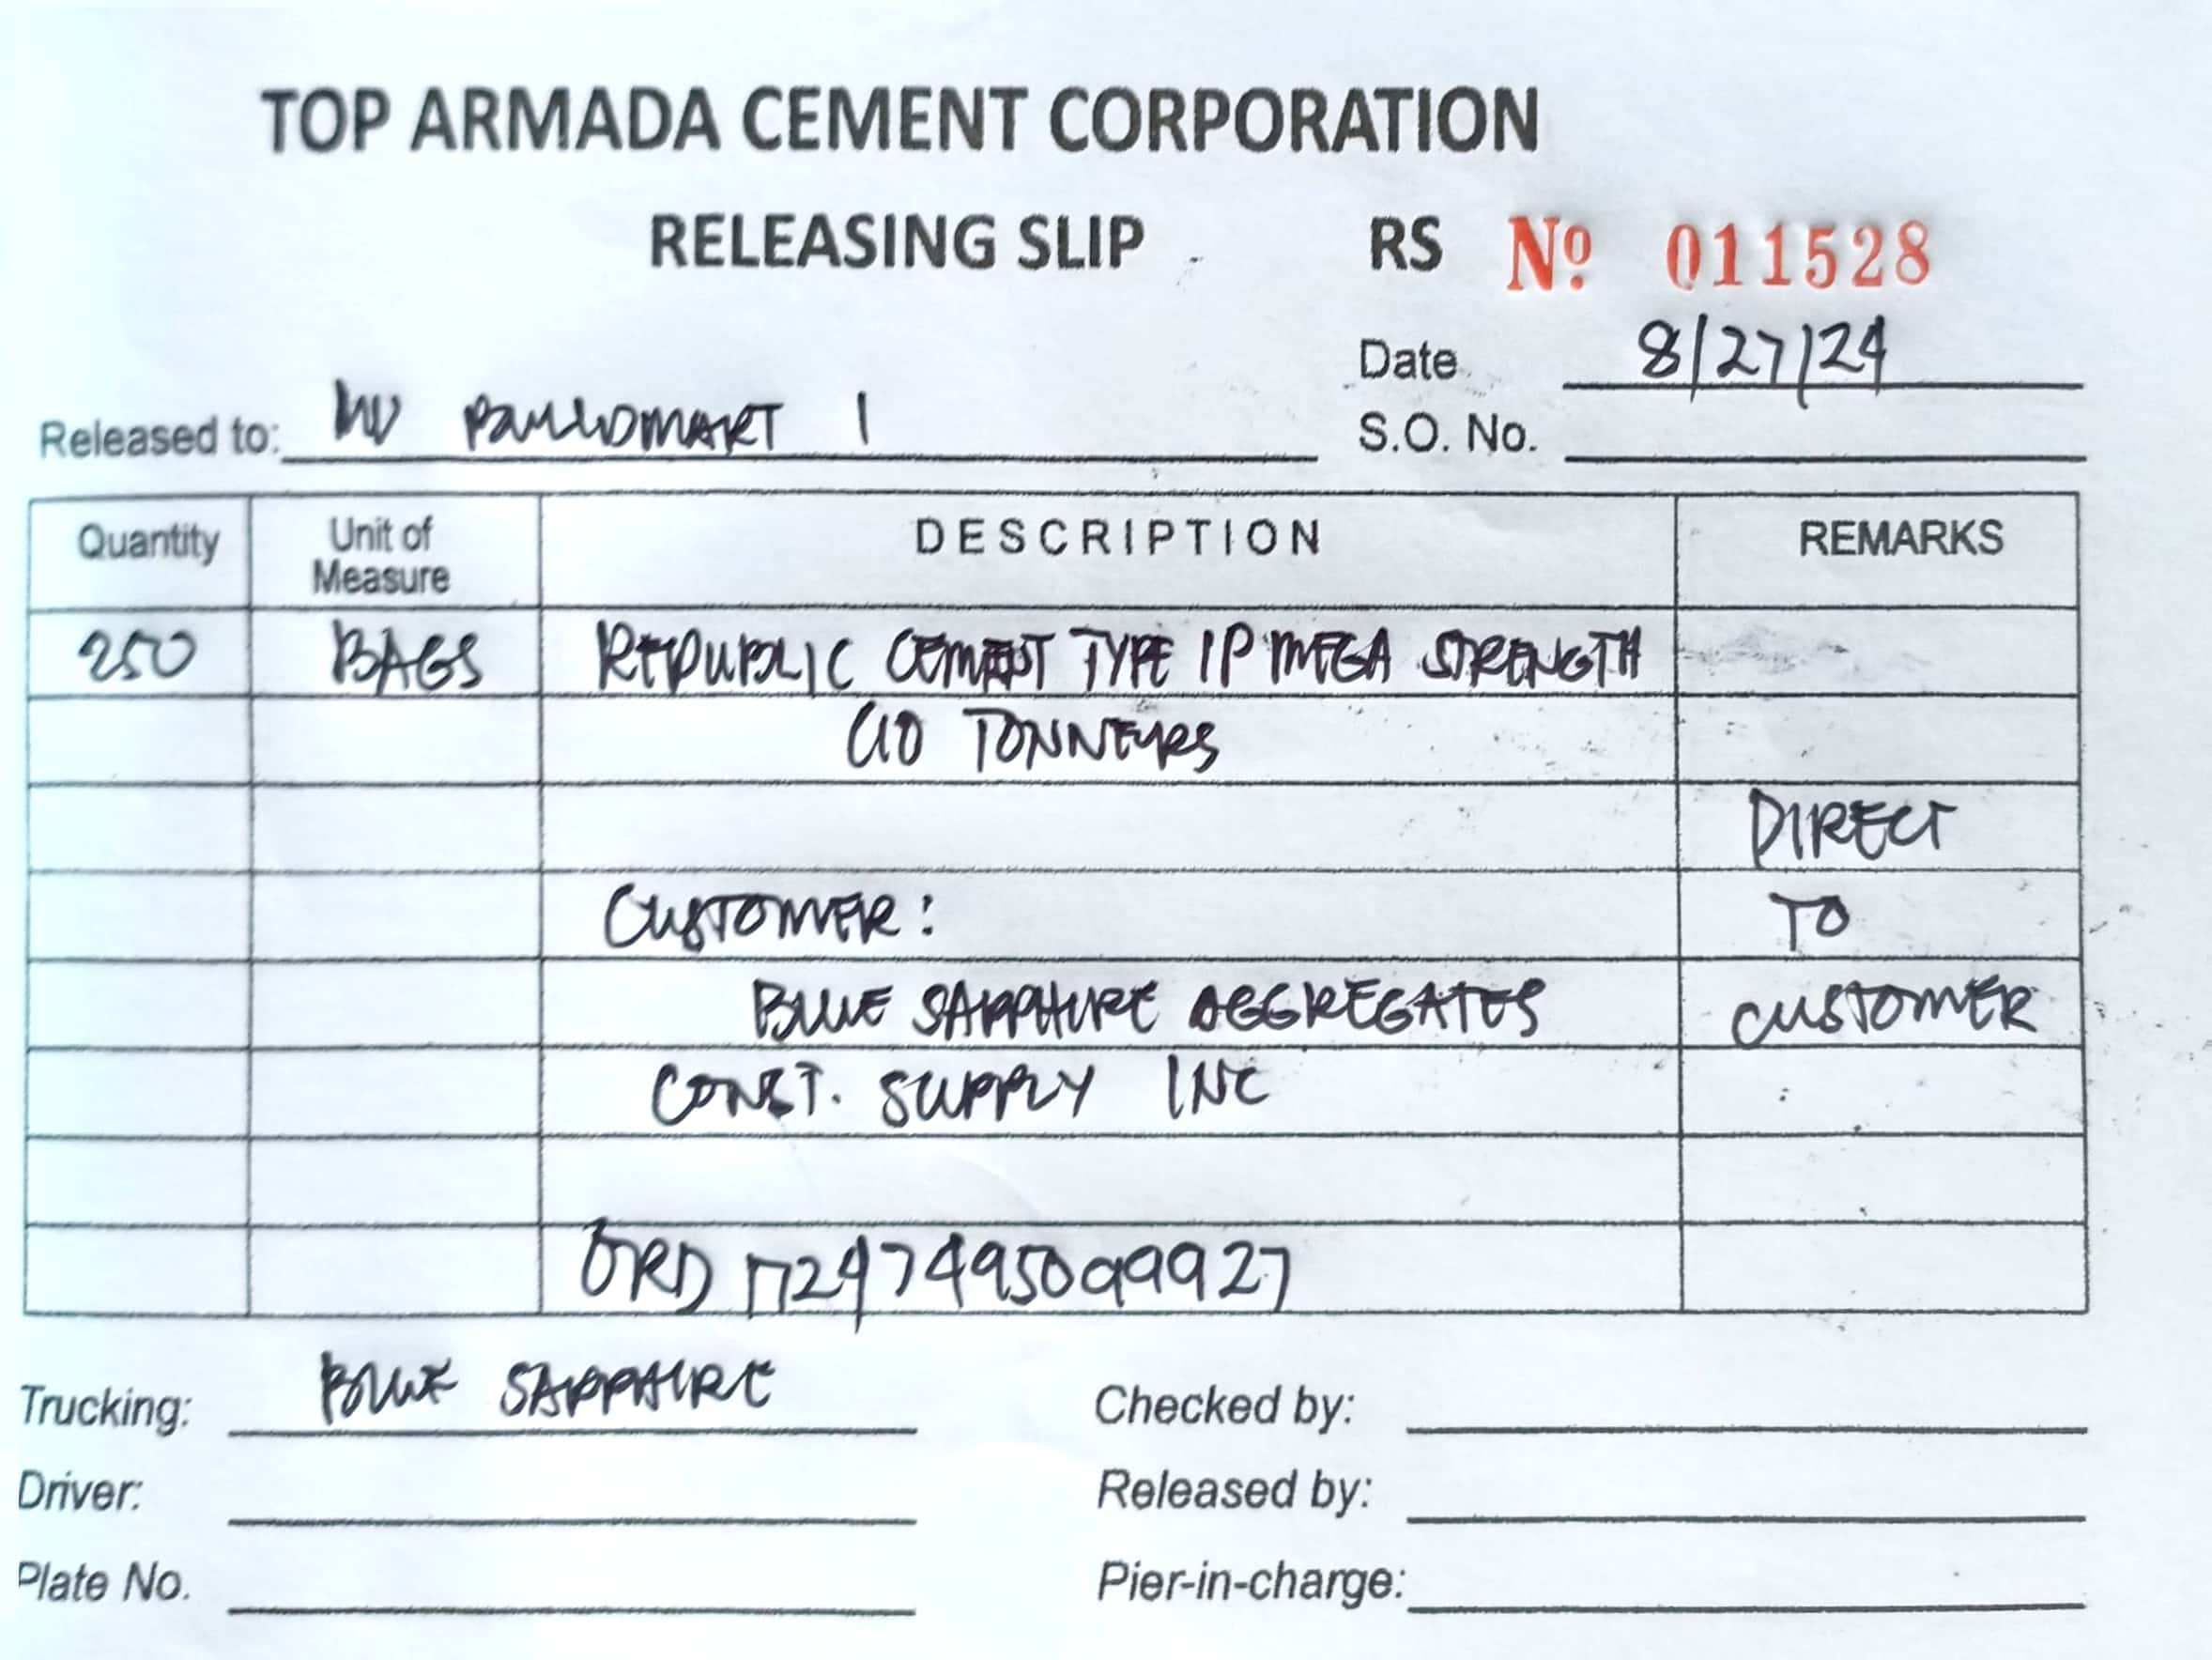 TOP ARMADA CEMENT CORPORATION
RELEASING SLIP RS Nº 011528
Date 8/27/24
Released to: 1
S.O. No.
Quantity Unit of Measure DESCRIPTION REMARKS
250 BAGS REPUBLIC CEMENT TYPE 1P MEGA STRENGTH
TONNERS
DIRECT
CUSTOMER: TO
BLUE SAPPHIRE AGGREGATES CUSTOMER
CONST. SUPPLY INC
ORD 1724749509927
Trucking: BLUE SAPPHIRE Checked by:
Driver: Released by:
Plate No. Pier-in-charge: